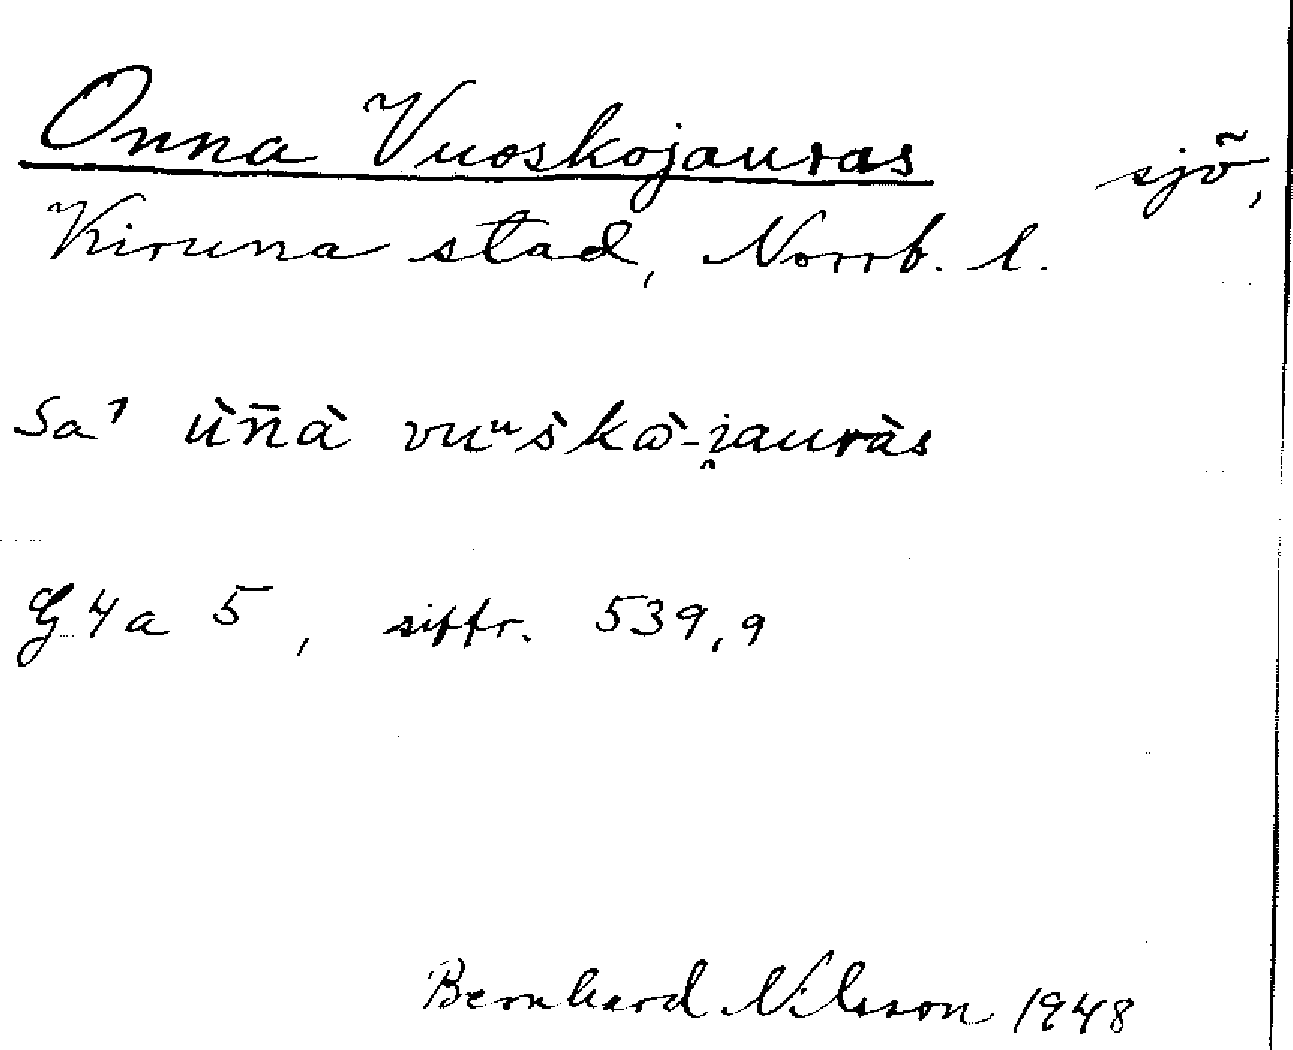 Onna Vuoskojauras sjö,
Kiruna stad, Norrb. l.
Sa' ùn̄à vuᵘs̀kò-i̯auràs
G 4 a 5, siffr. 539,9
Bernhard Nilsson 1948